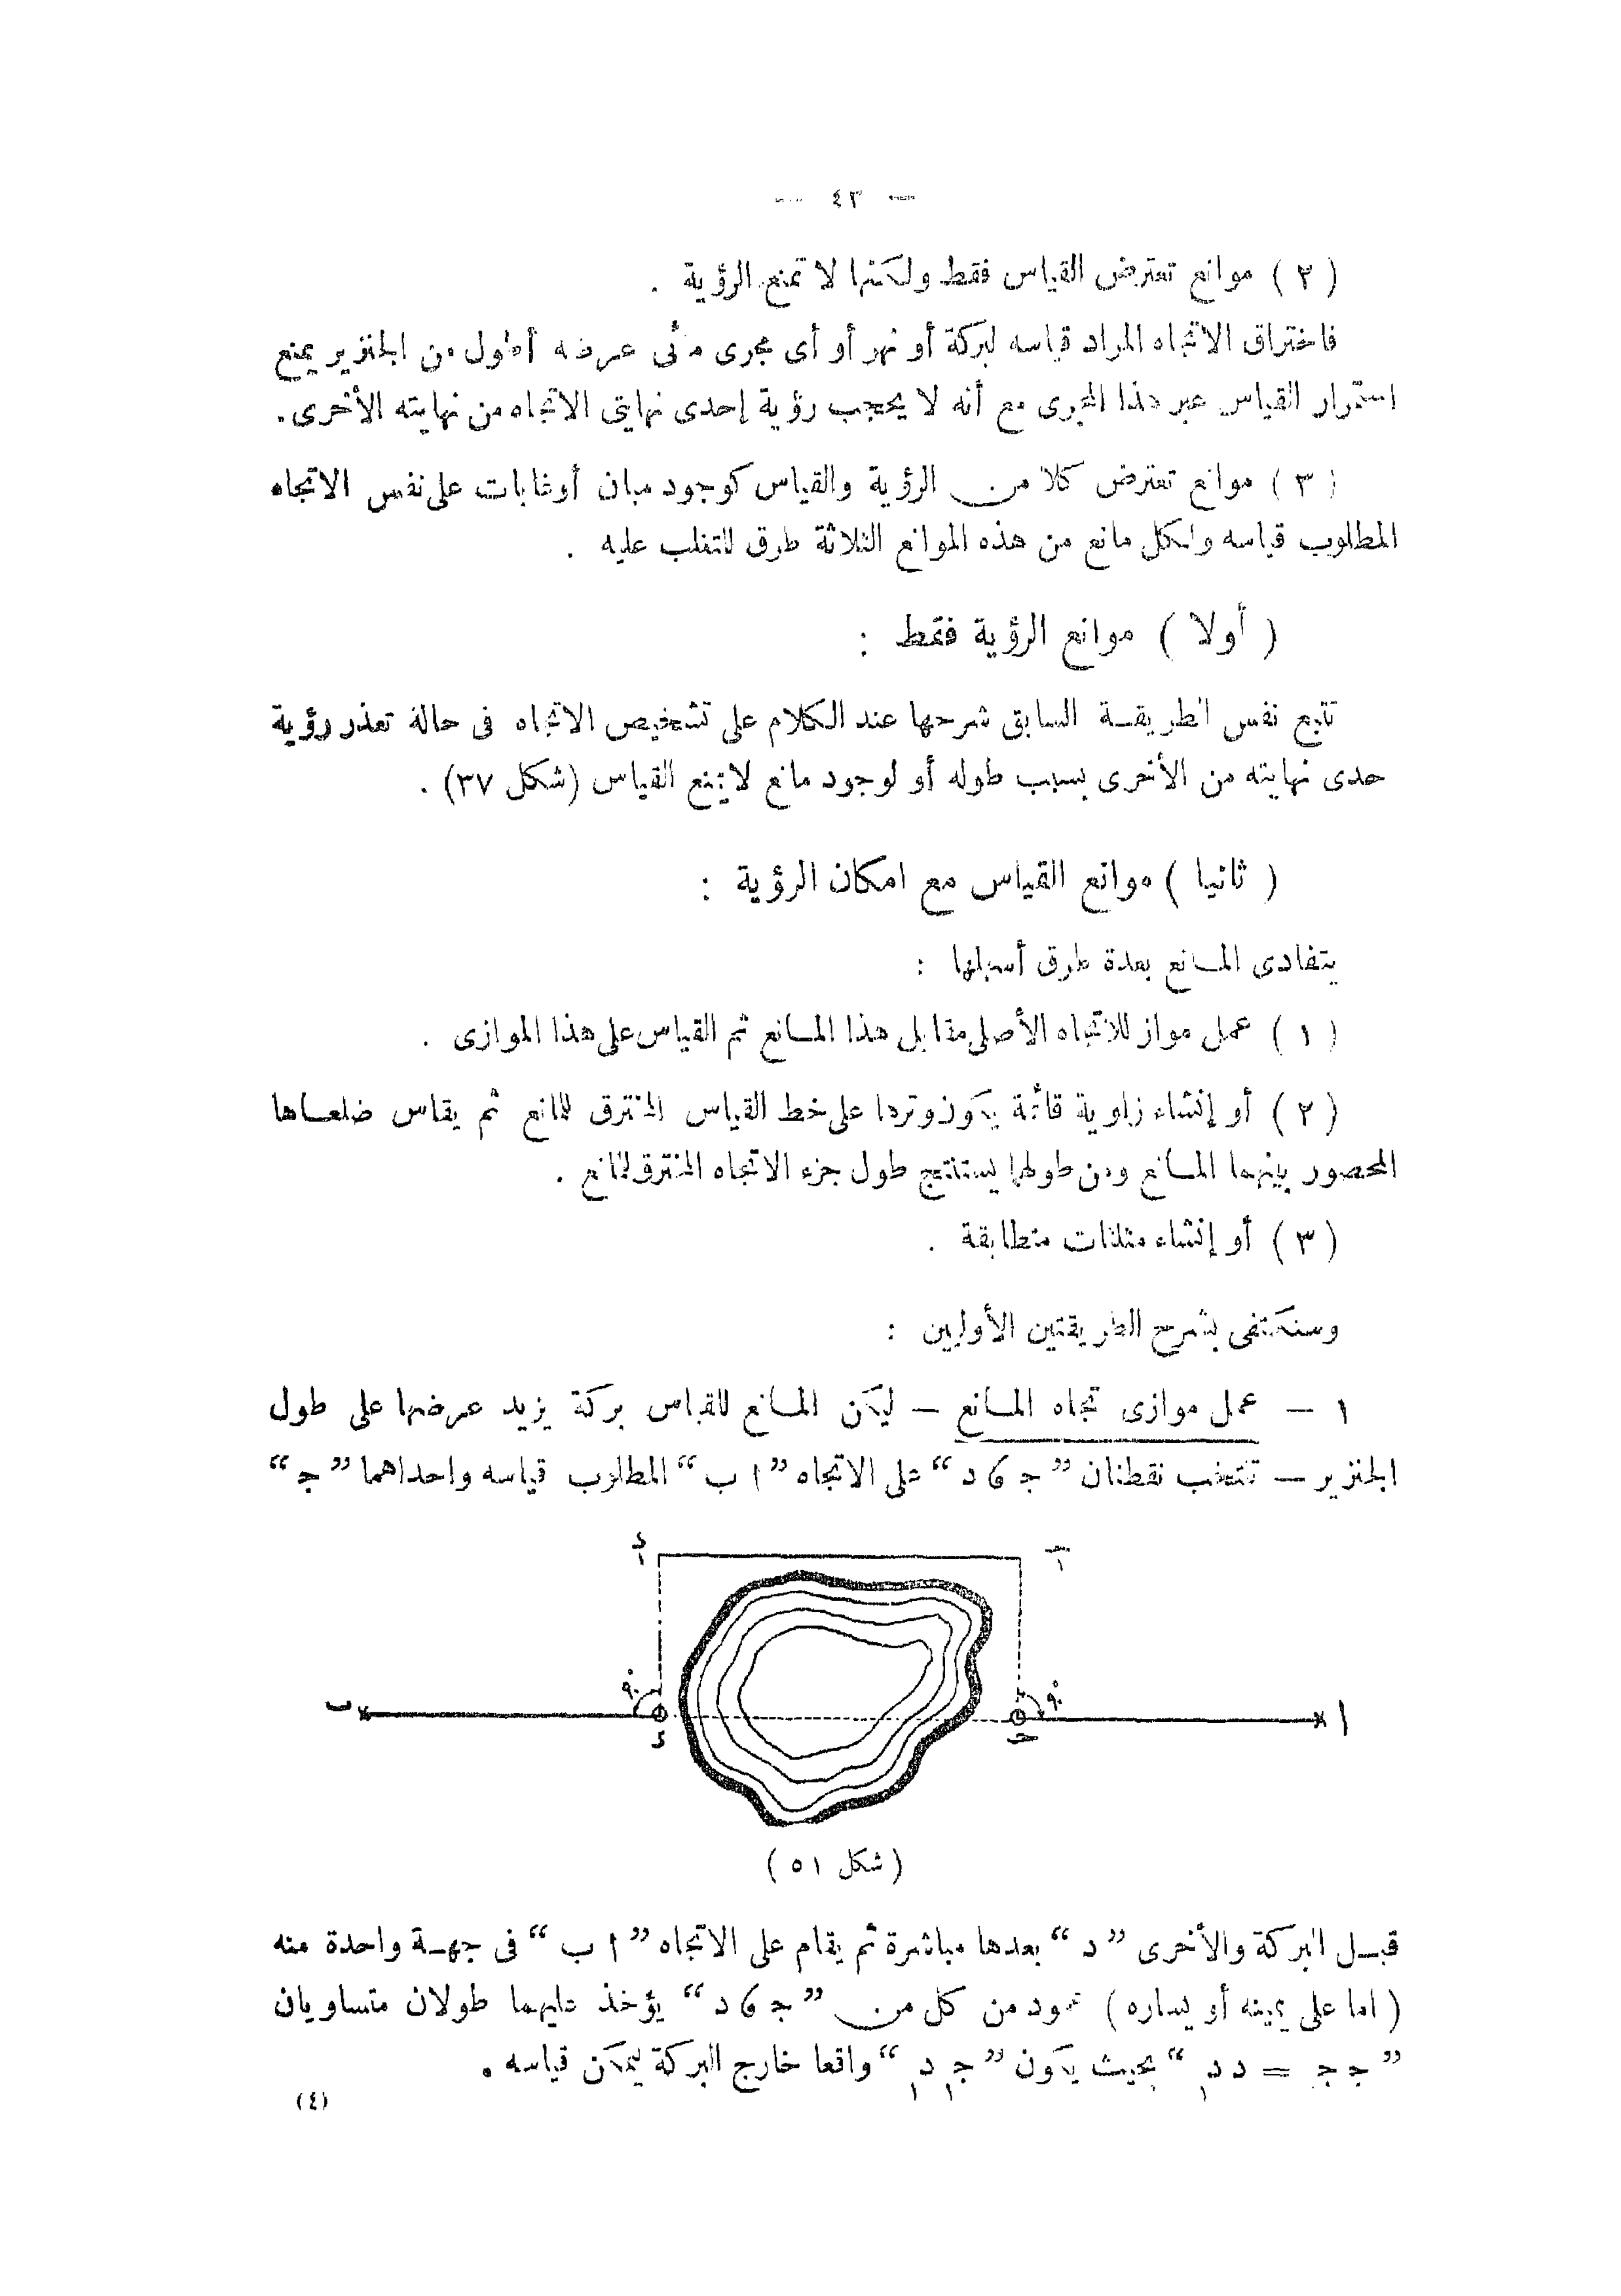 — ٤٣ —
( ٢ ) موانع تعترض القياس فقط ولكنها لا تمنع الرؤية .
فاختراق الاتجاه المراد قياسه لبركة أو نهر أو أى مجرى مائى عرضه أطول من الجنزير يمنع
استمرار القياس عبر هذا المجرى مع أنه لا يحجب رؤية إحدى نهايتى الاتجاه من نهايته الأخرى.
( ٣ ) موانع تعترض كلا من الرؤية والقياس كوجود مبان أوغابات على نفس الاتجاه
المطلوب قياسه ولكل مانع من هذه الموانع الثلاثة طرق للتغلب عليه .
( أولا ) موانع الرؤية فقط :
تتبع نفس الطريقة السابق شرحها عند الكلام على تشخيص الاتجاه فى حالة تعذر رؤية
حدى نهايته من الأخرى بسبب طوله أو لوجود مانع لايمنع القياس (شكل ٣٧) .
( ثانيا ) موانع القياس مع امكان الرؤية :
يتفادى المانع بعدة طرق أسهلها :
( ١ ) عمل مواز للاتجاه الأصلى مقابل هذا المانع ثم القياس على هذا الموازى .
( ٢ ) أو إنشاء زاوية قائمة يكون وترها على خط القياس المخترق للمانع ثم يقاس ضلعاها
المحصور بينهما المانع ومن طولهما يستنتج طول جزء الاتجاه المخترق للمانع .
( ٣ ) أو إنشاء مثلثات متطابقة .
وسنكتفى بشرح الطريقتين الأوليين :
١ — عمل موازى تجاه المانع — ليكن المانع للقياس بركة يزيد عرضها على طول
الجنزير — تنتخب نقطتان ”جـ ، د“ على الاتجاه ”ا ب“ المطلوب قياسه واحداهما ”جـ“
د١ جـ١
٩٠° ٩٠°
ب د جـ ا
( شكل ٥١ )
قبل البركة والأخرى ”د“ بعدها مباشرة ثم يقام على الاتجاه ”ا ب“ فى جهة واحدة منه
( اما على يمينه أو يساره ) عمود من كل من ”جـ ، د“ يؤخذ عليهما طولان متساويان
”جـ جـ = د د١“ بحيث يكون ”جـ١ د١“ واقعا خارج البركة ليمكن قياسه .
(٤)